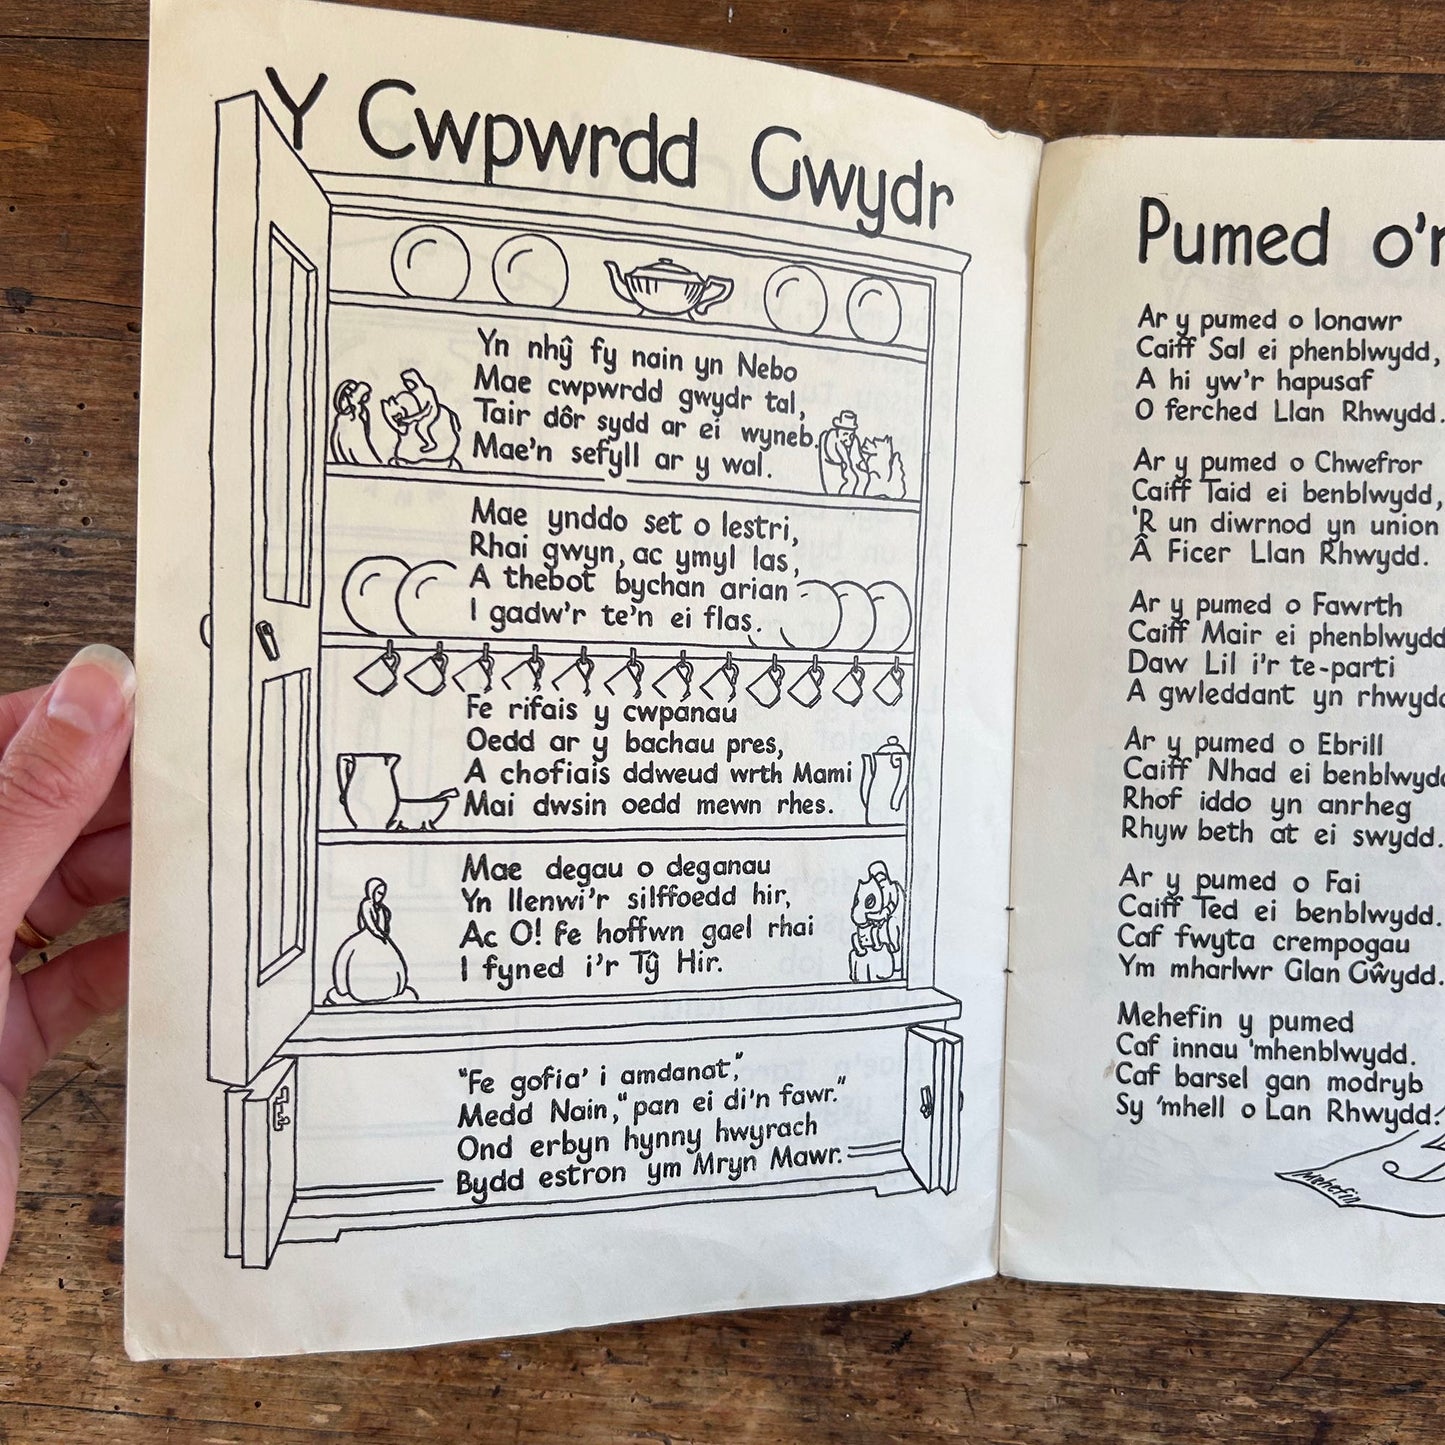 Y Cwpwrdd Gwydr
Yn nhŷ fy nain yn Nebo
Mae cwpwrdd gwydr tal,
Tair dôr sydd ar ei wyneb.
Mae'n sefyll ar y wal.
Mae ynddo set o lestri,
Rhai gwyn, ac ymyl las,
A thebot bychan arian
I gadw'r te'n ei flas.
Fe rifais y cwpanau
Oedd ar y bachau pres,
A chofiais ddweud wrth Mami
Mai dwsin oedd mewn rhes.
Mae degau o deganau
Yn llenwi'r silffoedd hir,
Ac O! fe hoffwn gael rhai
I fyned i'r Tŷ Hir.
"Fe gofia' i amdanat,"
Medd Nain, "pan ei di'n fawr."
Ond erbyn hynny hwyrach
Bydd estron ym Mryn Mawr.
Pumed o'r
Ar y pumed o Ionawr
Caiff Sal ei phenblwydd,
A hi yw'r hapusaf
O ferched Llan Rhwydd.
Ar y pumed o Chwefror
Caiff Taid ei benblwydd,
'R un diwrnod yn union
Â Ficer Llan Rhwydd.
Ar y pumed o Fawrth
Caiff Mair ei phenblwydd
Daw Lil i'r te-parti
A gwleddant yn
Ar y pumed o Ebrill
Caiff Nhad ei benblwydd
Rhof iddo yn anrheg
Rhyw beth at ei swydd.
Ar y pumed o Fai
Caiff Ted ei benblwydd.
Caf fwyta crempogau
Ym mharlwr Glan Gŵydd.
Mehefin y pumed
Caf innau 'mhenblwydd.
Caf barsel gan modryb
Sy 'mhell o Lan Rhwydd.
Mehefin